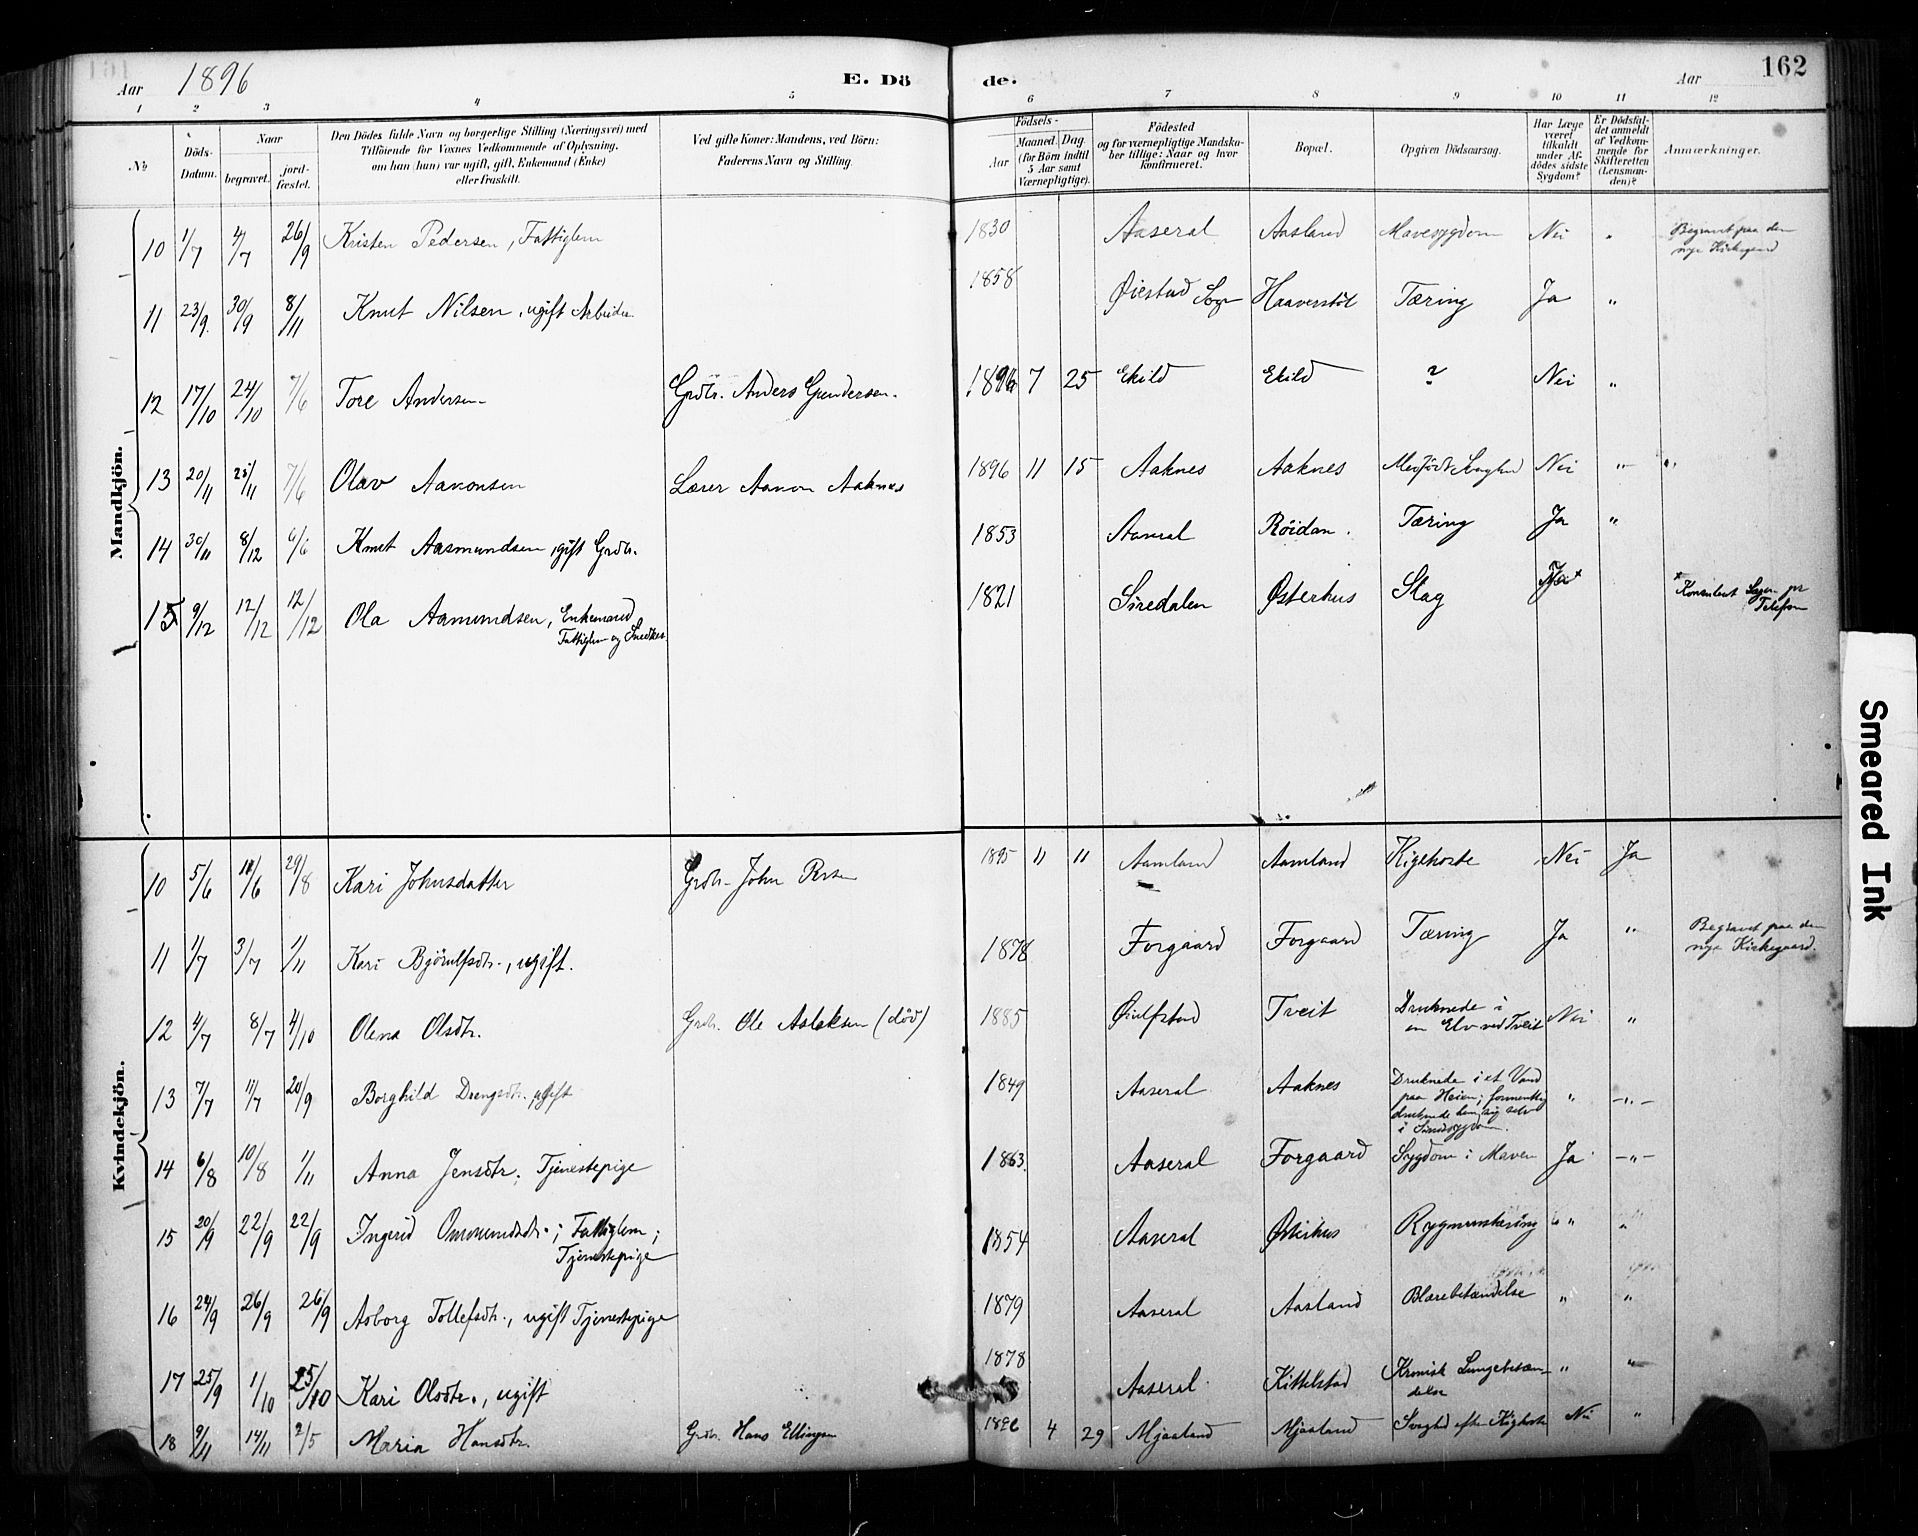 Aar 1896 E. Dö de. Aar 162
1 2 3 4 5 6 7 8 9 10 11 12
No
Döds-Datum.
Naar
begravet.
jord-fæstet.
Den Dödes fulde Navn og borgerlige Stilling (Næringsvei) med
Tilföiende for Voxnes Vedkommende af Oplysning,
om han (hun) var ugift, gift, Enkemand (Enke)
eller fraskilt.
Ved gifte Koner: Mandens, ved Börn:
Faderens Navn og Stilling.
Födsels-
Aar Maaned. Dag.
(for Börn indtil
5 Aar samt
Værnepligtige).
Födested
og for værnepligtige Mandska-
ber tillige: Naar og hvor
konfirmeret.
Bopæl.
Opgiven Dödsaarsag.
Har Læge
været
tilkaldt
under Af-
dödes sidste
Sygdom?
Er Dödsfal-
det anmeldt
af Vedkom-
mende for
Skifteretten
(Lensman-
den)?
Anmærkninger.
Mandkjön.
10 1/7 4/7 26/9 Kristen Pedersen, Fattiglem 1830 Aaseral Aasland Mavesygdom Nei " Begravet paa den
nye Kirkegaard
11 23/9 30/9 8/11 Knut Nilsen, ugift Arbeider 1858 Øiestad Sogn Haaverstöl Tæring Ja "
12 17/10 24/10 7/6 Tore Andersen Grdbr. Anders Gundersen. 1896 7 25 Ekild Ekild ? Nei "
13 20/11 25/11 7/6 Olav Aanonsen Lærer Aanon Aaknes 1896 11 15 Aaknes Aaknes Medfödt Svaghed Nei "
14 30/11 8/12 6/6 Knut Aasmundsen, gift Grdbr. 1853 Aaseral Röidan. Tæring Ja "
15 9/12 12/12 12/12 Ola Aamundsen, Enkemand
Fattiglem og Snedker 1821 Siredalen Østerhus Slag × Konsulent Lægen pr
Telefon
Kvindekjön.
10 5/6 11/6 29/8 Kari Johnsdatter Grdbr. John Persen 1895 11 11 Aamland Aamland Kighoste Nei Ja
11 1/7 3/7 1/11 Kari Björulfsdtr., ugift. 1878 Forgaard Forgaard Tæring Ja " Begravet paa den
nye Kirkegaard.
12 4/7 8/7 4/10 Olena Olsdtr. Grdbr. Ole Aslaksen (död) 1885 Øiulfstad Tveit Druknede i
en Elv ved Tveit Nei "
13 7/7 11/7 20/9 Borghild Drengsdtr. ugift 1849 Aaseral Aaknes Druknede i et Vand
paa Heien; formentlig
druknede hun sig selv
i Sindssygdom. " -"-
14 6/8 10/8 1/11 Anna Jensdtr, Tjenestepige 1863. Aaseral Forgaard Sygdom i Maven Ja -"-
15 20/9 22/9 22/9 Ingerid Ommundsdtr.; Fattiglem;
Tjenestepige 1854 Aaseral Østerhus Rygmarvstæring " "
16 24/9 26/9 26/9 Asborg Tollefsdtr., ugift Tjenestepige 1879 Aaseral Aasland Blærebetændelse " "
17 25/9 1/10 25/10 Kari Olsdtr., ugift 1878 Aaseral Kittelstad Kronisk Lungebetæn-
delse " "
18 9/11 14/11 2/5 Maria Hansdtr. Grdbr. Hans Ellingsen 1896 4 29 Mjaaland Mjaaland Svaghed efter Kighoste Nei "
Smeared Ink